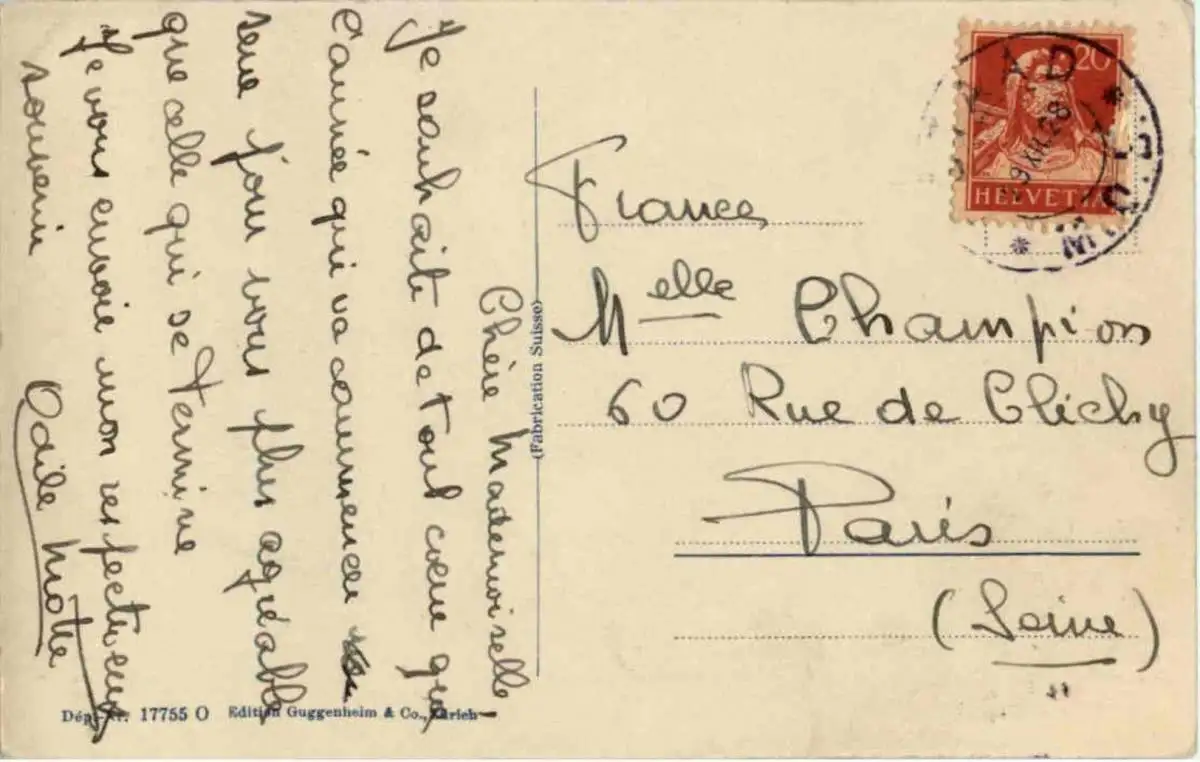 Chère Mademoiselle
Je souhaite de tout cœur que
l'année qui va commencer
sera pour vous plus agréable
que celle qui se termine
Je vous envoie mon respectueux
souvenir
Odile
France
Melle Champion
60 Rue de Clichy
Paris
(Seine)
(Fabrication Suisse)
Dép. Nr. 17755 O Edition Guggenheim & Co., Zürich
20
HELVETIA
XII.28